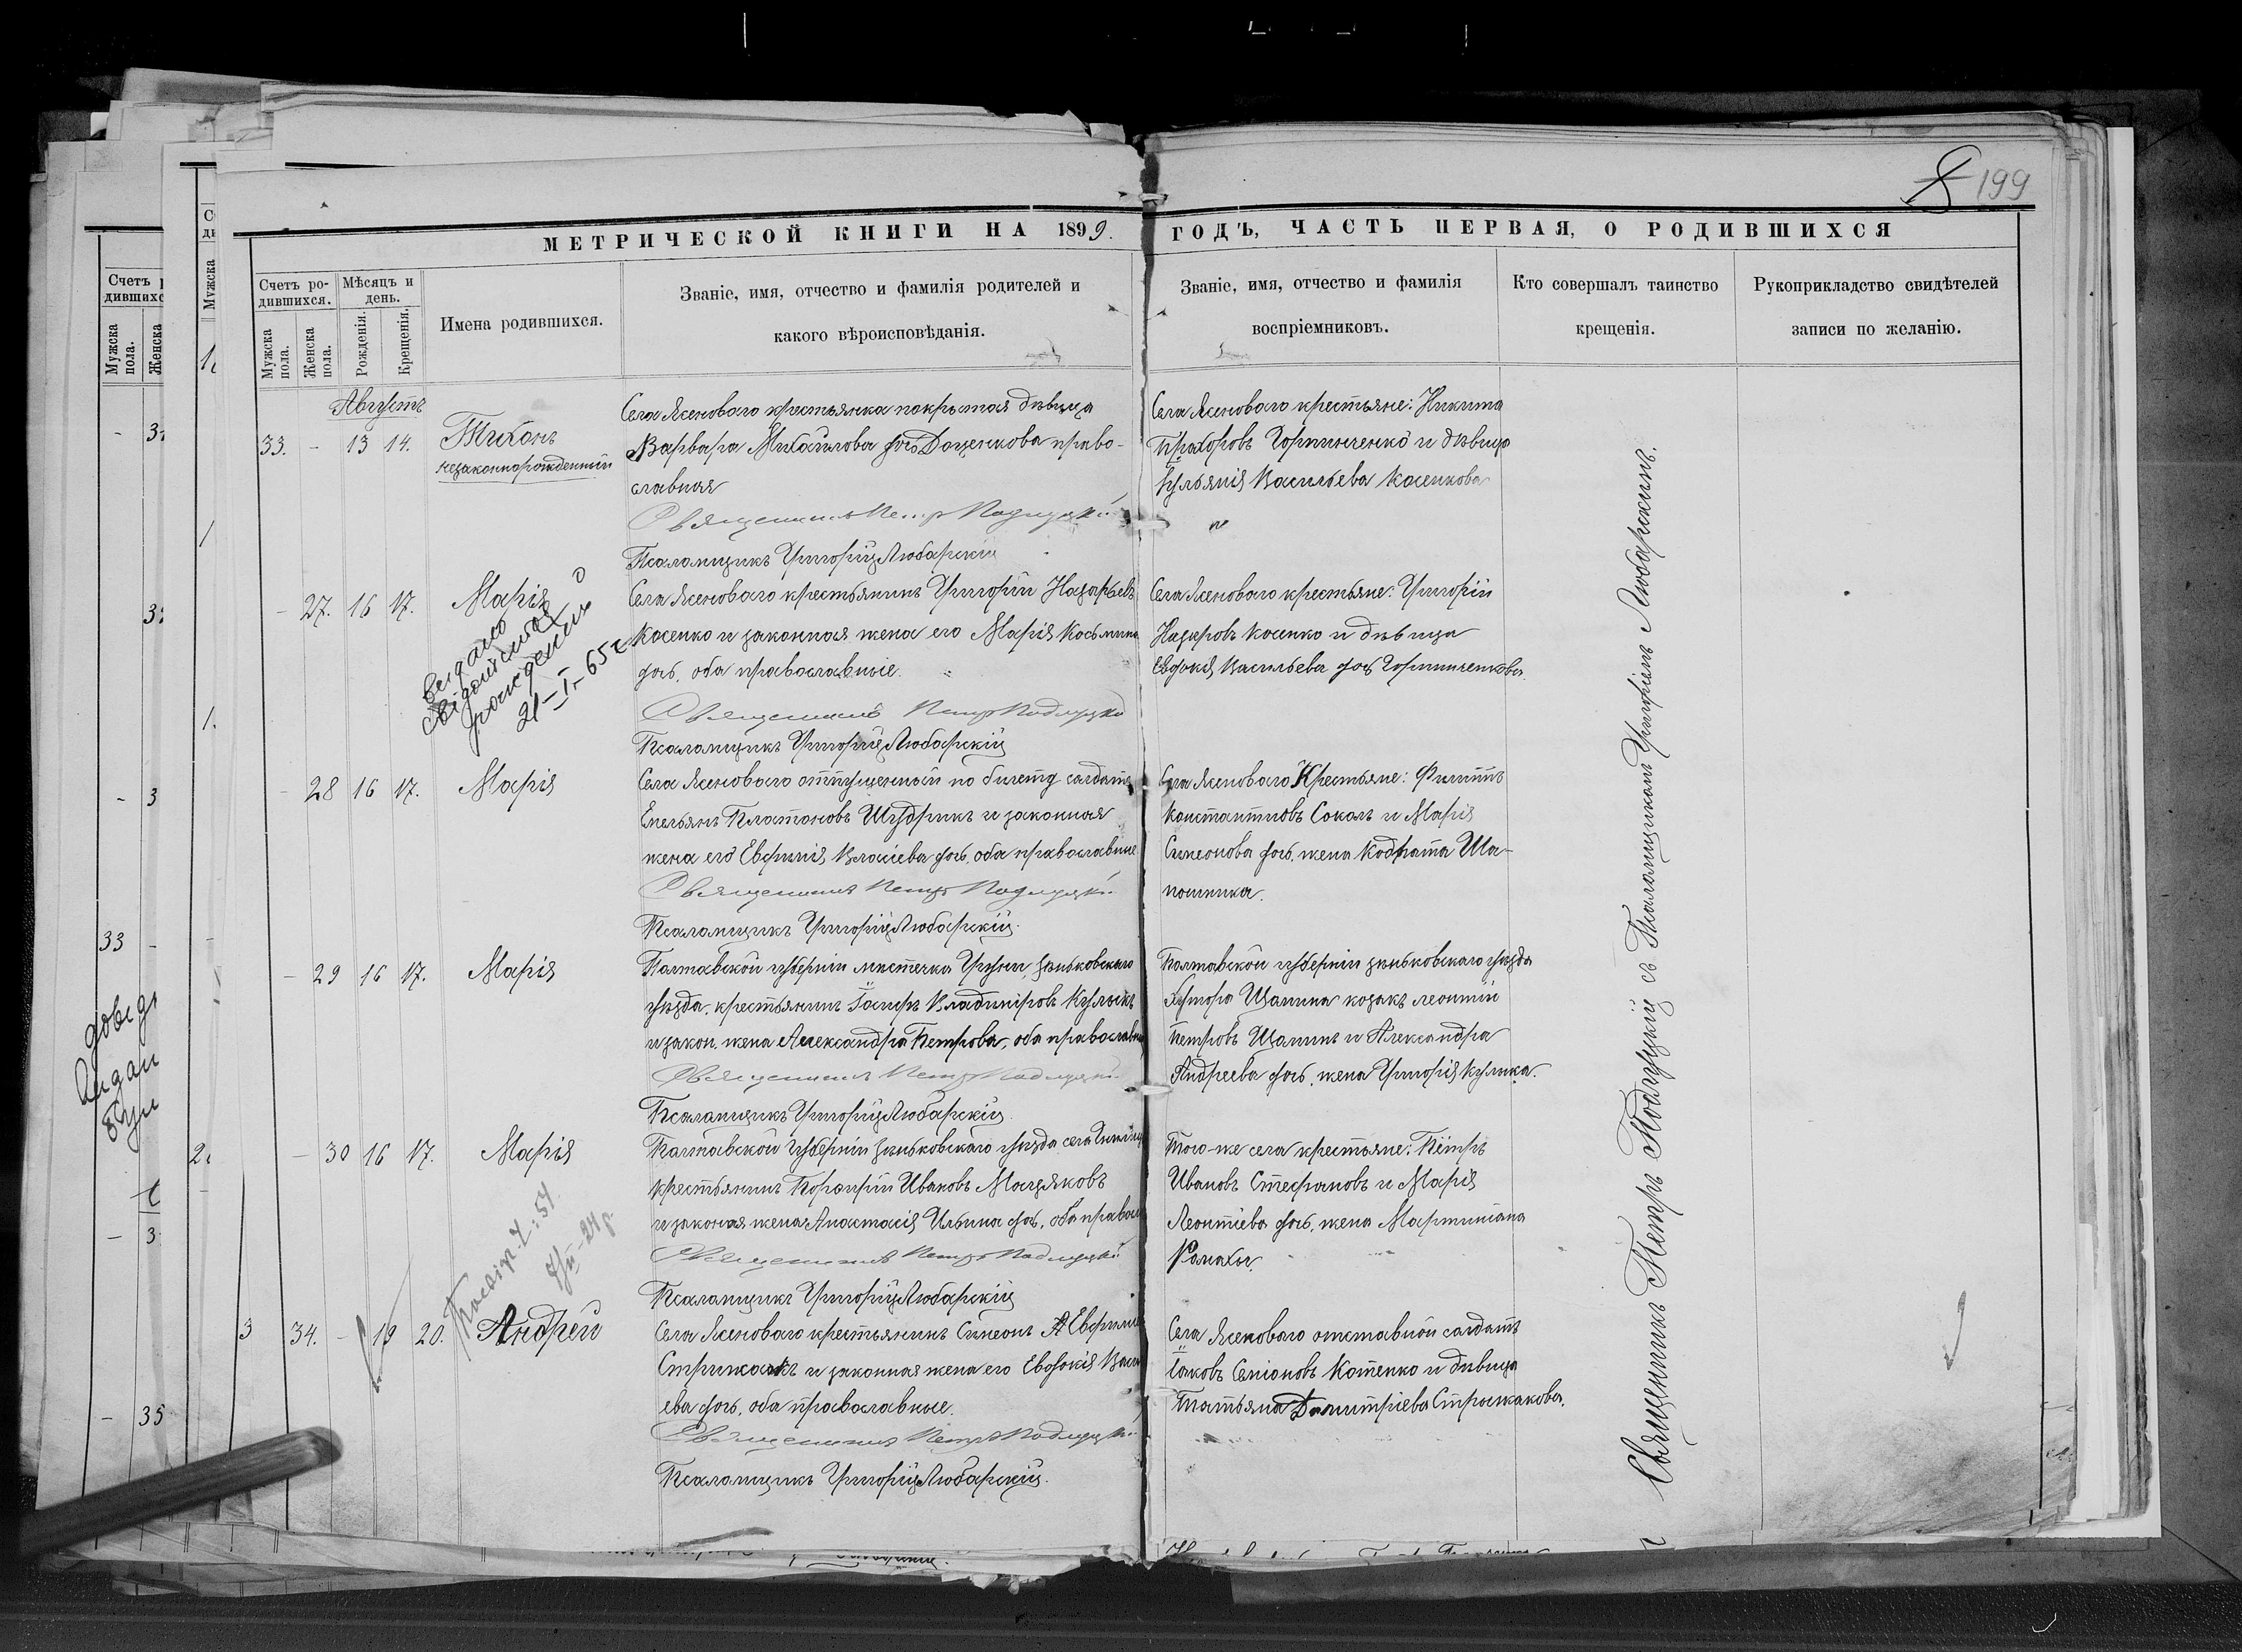 199
МЕТРИЧЕСКОЙ КНИГИ НА 1899. ГОДЪ, ЧАСТЬ ПЕРВАЯ, О РОДИВШИХСЯ
Счетъ ро-
дившихся.
Мужска
пола.
Женска
пола.
Мѣсяцъ и
день.
Рожденія.
Крещенія.
Имена родившихся.
Званіе, имя, отчество и фамилія родителей и
какого вѣроисповѣданія.
Званіе, имя, отчество и фамилія
воспріемниковъ.
Кто совершалъ таинство
крещенія.
Рукоприкладство свидѣтелей
записи по желанію.
Августъ
33. - 13 14. Тихонъ
незаконнорожденный
Села Ясеноваго крестьянка покрытая дѣвица
Варвара Михайлова Доценкова право-
славная
Священникъ Петръ Подлуцкій
Псаломщикъ Григорій Любарскій
Села Ясеноваго крестьяне: Никита
Прохоровъ Горпинченко и дѣвица
Ульянія Васильева Косенкова
- 27. 16 17. Марія
видано
свідоцтво о
рождении
21-I-65 г
Села Ясеноваго крестьянинъ Григорій Назарьевъ
Косенко и законная жена его Марія Косьмина
дочь, оба православные.
Священникъ Петръ Подлуцкій
Псаломщикъ Григорій Любарскій
Села Ясеноваго крестьяне: Григорій
Назаровъ Косенко и дѣвица
Евдокія Васильева дочь Горпинченкова.
- 28 16 17. Марія
Села Ясеноваго отпущенный по билету салдатъ
Емельянъ Платоновъ Шудрикъ и законная
жена его Евфимія Власіева дочь, оба православные
Священникъ Петръ Подлуцкій
Псаломщикъ Григорій Любарскій.
Села Ясеноваго Крестьяне: Филиппъ
Константиновъ Соколъ и Марія
Симеонова дочь, жена Кодрата Ша-
пошника.
- 29 16 17. Марія
Полтавской губерніи мѣстечка Груни, Зѣньковскаго
уѣзда, крестьянинъ Владиміровъ Куликъ
и закон. жена Александра Петрова, оба православны
Священникъ Петръ Подлуцкій
Псаломщикъ Григорій Любарскій.
Полтавской губерніи Зѣньковскаго уѣзда
хутора Щапина козакъ Леонтій
Петровъ Щапинъ и Александра
Андреева дочь, жена Григорія Кулика.
- 30 16 17. Марія
Полтавской губерніи Зѣньковскаго уѣзда, села
крестьянинъ Порфирій Ивановъ Мацяковъ
и законая жена Анастасія Ильина дочь, оба правосл
Священникъ Петръ Подлуцкій
Псаломщикъ Григорій Любарскій
Того-же села крестьяне: Петръ
Ивановъ Стефановъ и Марія
Леонтіева дочь, жена Мартиніана
34. - 19 20. Андрей
Села Ясеноваго крестьянинъ Симеонъ Евфимі
Стрижакъ и законная жена его Евдокія Васи
ева дочь, оба православные.
Священникъ Петръ Подлуцкій
Псаломщикъ Григорій Любарскій.
Села Ясеноваго отставной салдатъ
Іаковъ Котенко и дѣвица
Татьяна Димитріева Стрижакова.
Священникъ Петръ Подлуцкій съ Псаломщикомъ Григоріемъ Любарскимъ.